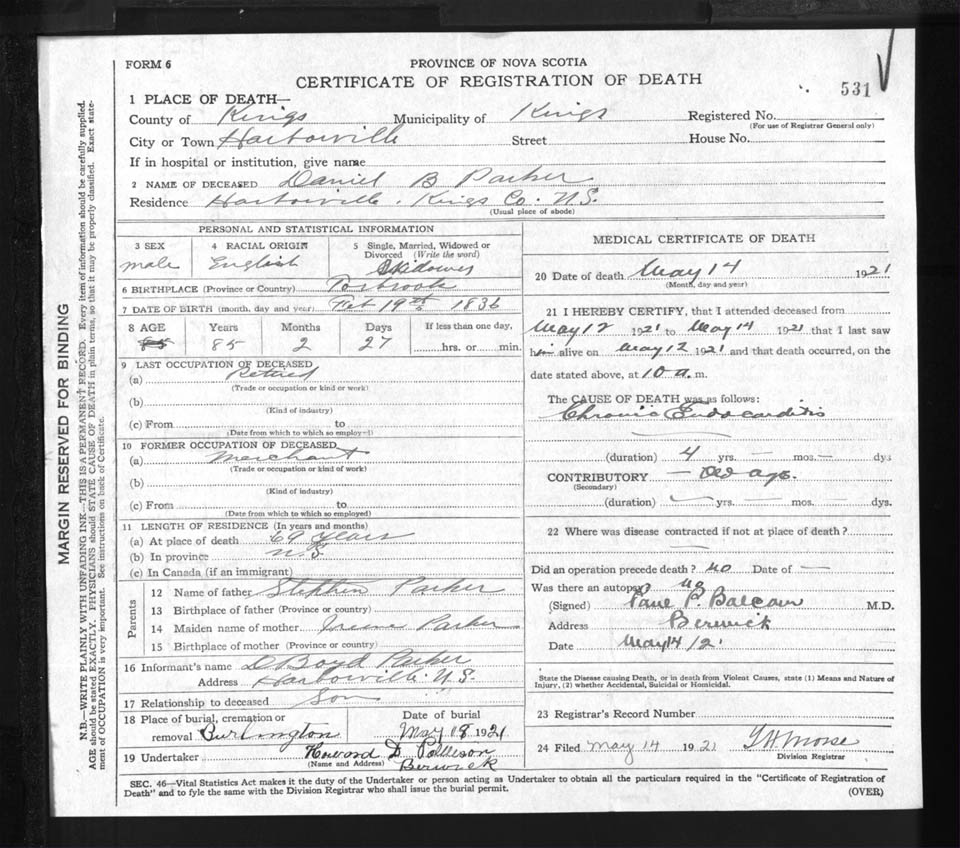 FORM 6
PROVINCE OF NOVA SCOTIA
CERTIFICATE OF REGISTRATION OF DEATH
531
1 PLACE OF DEATH—
County of Kings Municipality of Kings Registered No.
(For use of Registrar General only)
City or Town Harborville Street House No.
If in hospital or institution, give name
2 NAME OF DECEASED Daniel B Parker
Residence Harborville. Kings Co. N.S.
(Usual place of abode)
PERSONAL AND STATISTICAL INFORMATION
3 SEX 4 RACIAL ORIGIN 5 Single, Married, Widowed or
Divorced (Write the word)
male English Widower
6 BIRTHPLACE (Province or Country) Torbrook
7 DATE OF BIRTH (month, day and year) Feb 19th 1836
8 AGE Years Months Days If less than one day,
85 85 2 27 hrs. or min.
9 LAST OCCUPATION OF DECEASED
(a) Retired
(Trade or occupation or kind or work)
(b)
(Kind of industry)
(c) From to
(Date from which to which so employ—)
10 FORMER OCCUPATION OF DECEASED
(a) Merchant
(Trade or occupation or kind of work)
(b)
(Kind of industry)
(c) From to
(Date from which to which so employed)
11 LENGTH OF RESIDENCE (In years and months)
(a) At place of death 69 years
(b) In province N.S.
(c) In Canada (if an immigrant)
Parents
12 Name of father Stephen Parker
13 Birthplace of father (Province or country)
14 Maiden name of mother Irene Parker
15 Birthplace of mother (Province or country)
16 Informant's name D Boyd Parker
Address Harborville N.S.
17 Relationship to deceased Son
18 Place of burial, cremation or Date of burial
removal Burlington May 18 1921
19 Undertaker Howard D.
(Name and Address) Berwick
MEDICAL CERTIFICATE OF DEATH
20 Date of death May 14 1921
(Month, day and year)
21 I HEREBY CERTIFY, that I attended deceased from
May 12 1921 to May 14 1921 that I last saw
him alive on May 12 1921 and that death occurred, on the
date stated above, at 10 a. m.
The CAUSE OF DEATH was as follows:
Chronic Endocarditis
(duration) 4 yrs. — mos. — dys
CONTRIBUTORY — Old age.
(Secondary)
(duration) — yrs. — mos. — dys.
22 Where was disease contracted if not at place of death?
—
Did an operation precede death? no Date of —
Was there an autopsy no
(Signed) P. Balcom M.D.
Address Berwick
Date May 14/21
State the Disease causing Death, or in death from Violent Causes, state (1) Means and Nature of
Injury, (2) whether Accidental, Suicidal or Homicidal.
23 Registrar's Record Number
24 Filed May 14 1921 Morse
Division Registrar
SEC. 46—Vital Statistics Act makes it the duty of the Undertaker or person acting as Undertaker to obtain all the particulars required in the "Certificate of Registration of
Death" and to fyle the same with the Division Registrar who shall issue the burial permit.
(OVER)
MARGIN RESERVED FOR BINDING
N.B.—WRITE PLAINLY WITH UNFADING INK—THIS IS A PERMANENT RECORD. Every item of information should be carefully supplied.
AGE should be stated EXACTLY. PHYSICIANS should STATE CAUSE OF DEATH in plain terms, so that it may be properly classified. Exact state-
ment of OCCUPATION is very important. See instructions on back of Certificate.